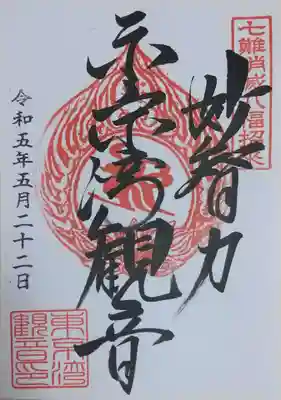 七難消滅八福招来
妙智力
東京湾観音
令和五年五月二十二日
東京湾
觀音印